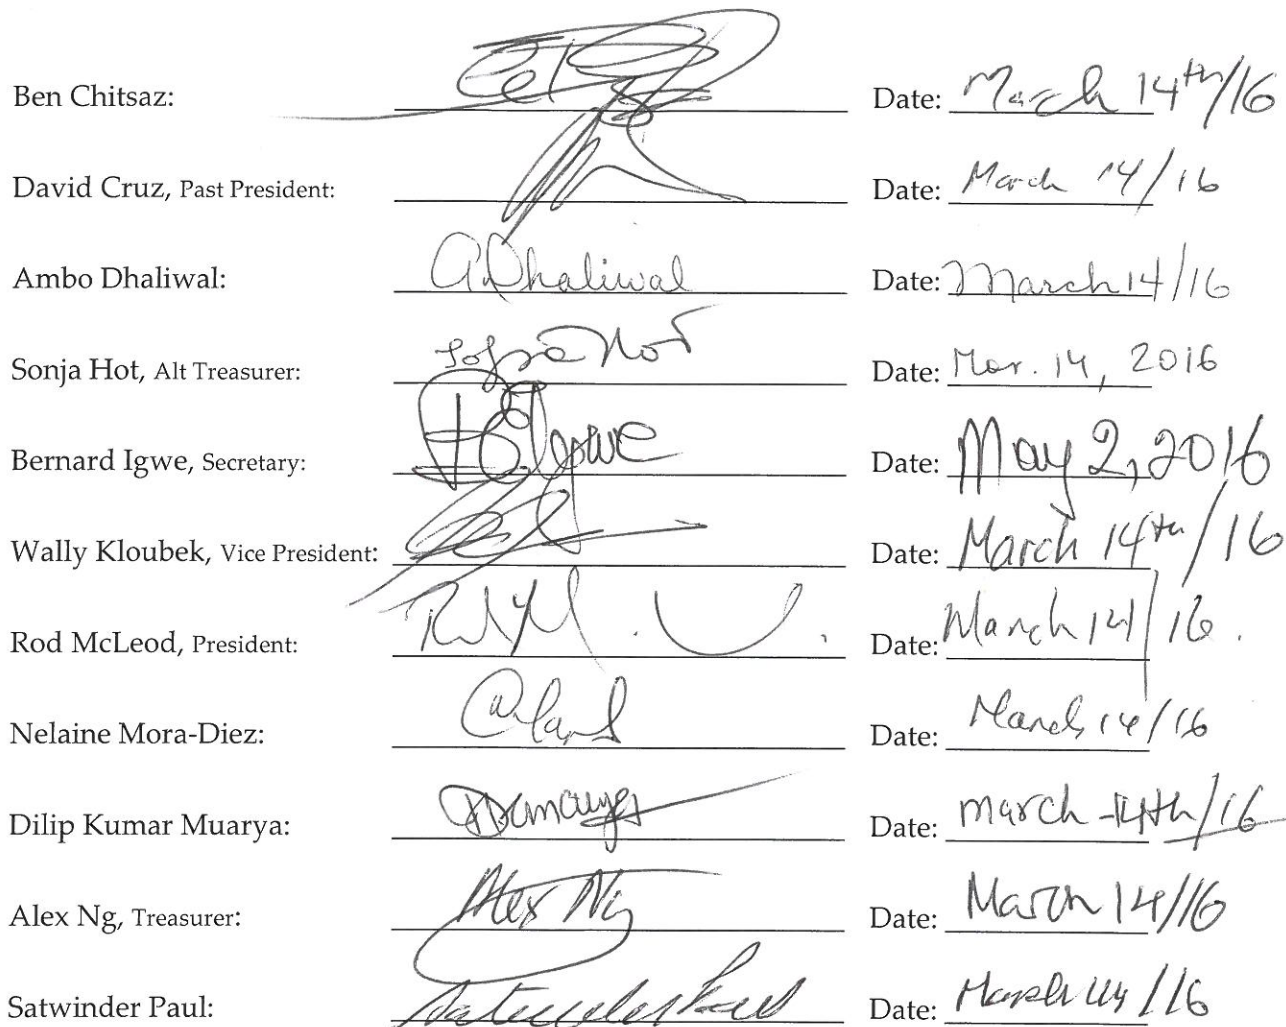 Ben Chitsaz: Date: March 14th/16
David Cruz, Past President: Date: March 14/16
Ambo Dhaliwal: ADhaliwal Date: March 14/16
Sonja Hot, Alt Treasurer: Sonja Hot Date: Mar. 14, 2016
Bernard Igwe, Secretary: Igwe Date: May 2, 2016
Wally Kloubek, Vice President: Date: March 14th/16
Rod McLeod, President: Date: March 14/16.
Nelaine Mora-Diez: Date: March 14/16
Dilip Kumar Muarya: Date: March 14th/16
Alex Ng, Treasurer: Alex Ng Date: March 14/16
Satwinder Paul: Satwinder Paul Date: March 14/16